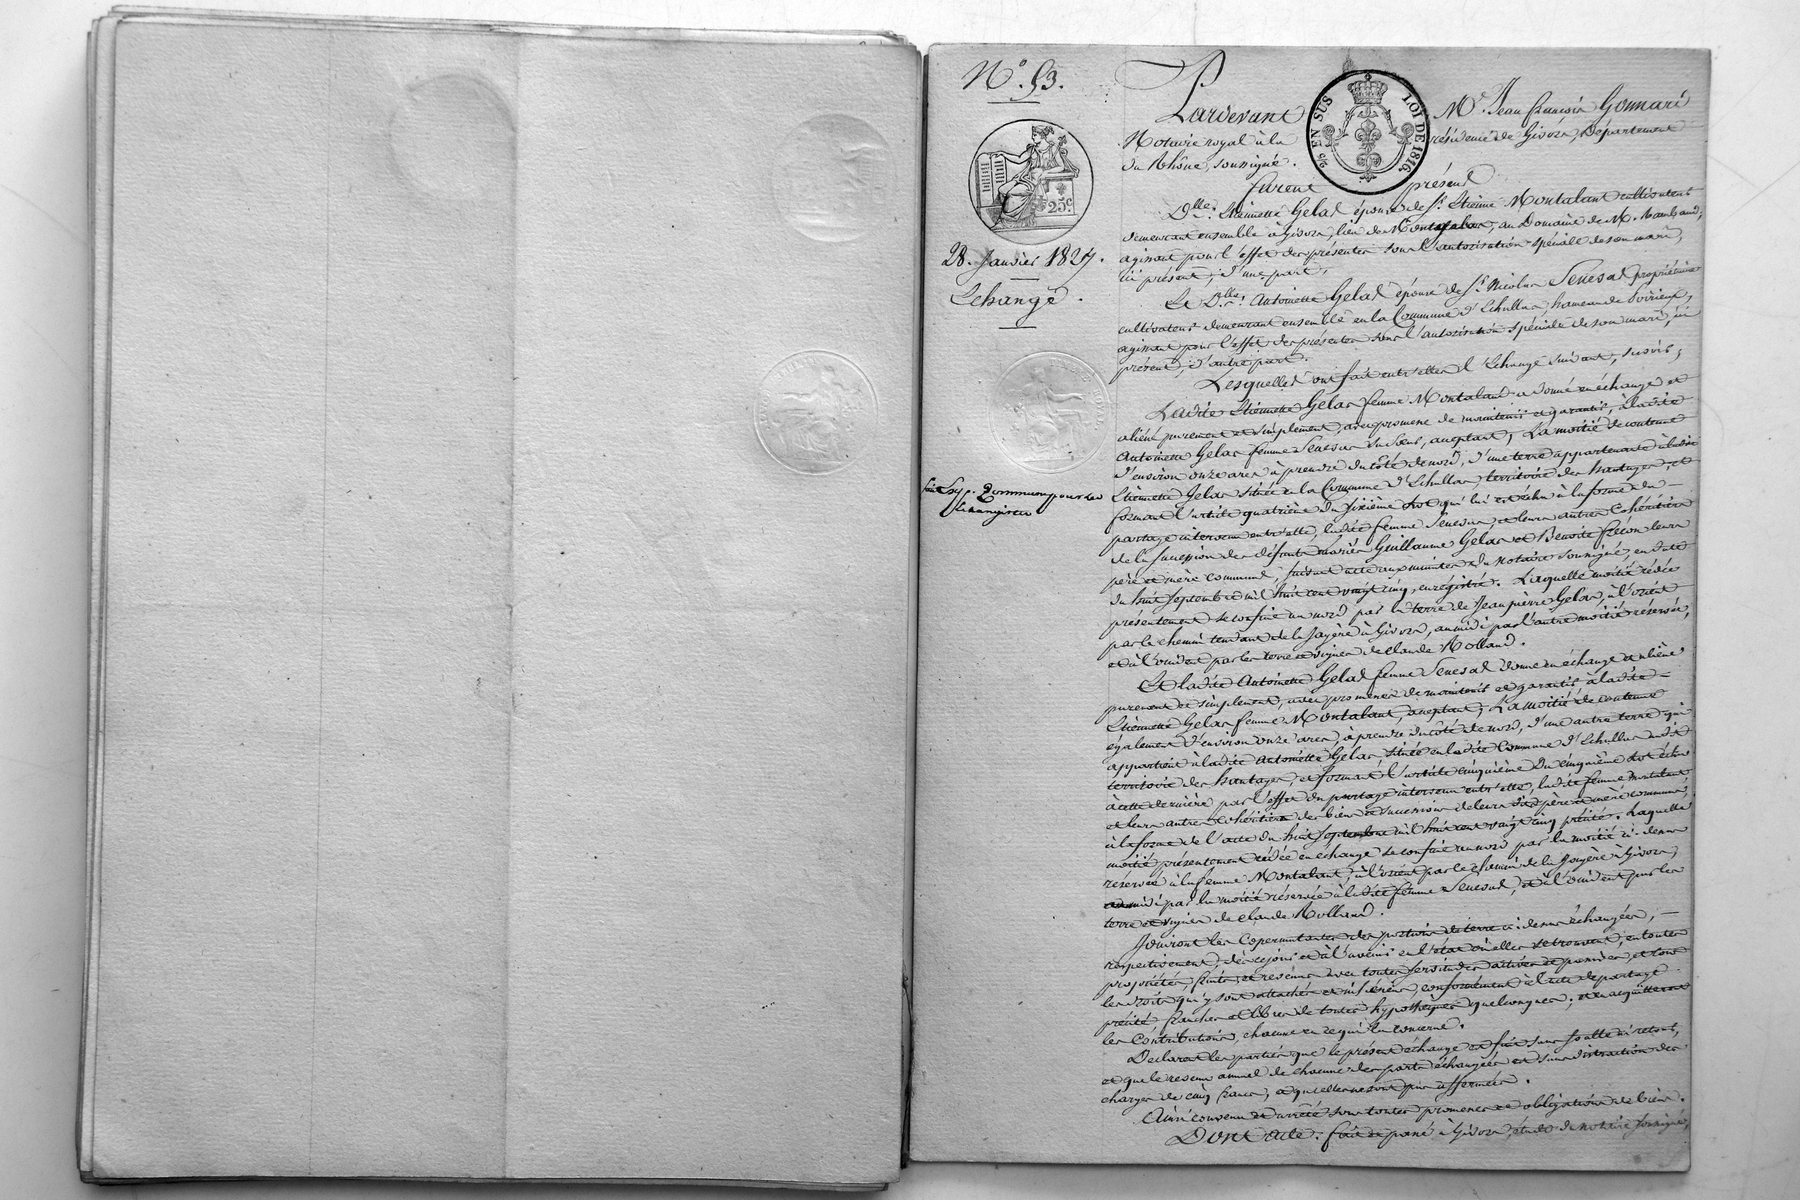 N.º 53.
25.c
28. Janvier 1827.
Echange.
EN SUS
LOI DE 1816
Pardevant Mᵉ. Jean françois Gonnard
Notaire royal à la résidence de Givors, Département
du Rhône, soussigné.
furent présent
Dlle. Etiennette Gelas épouse de Sr. Etienne Montalant cultivateur
demeurant ensemble à Givors, lieu de Montgelas, au Domaine de M.
agissant pour l'effet des présentes sous l'autorisation spéciale de son mari,
ici présent, d'une part,
Et Dlle. Antoinette Gelas épouse de Sr. Nicolas Senesal propriétaire
cultivateur demeurant ensemble en la Commune d'Echallas, hameau de
agissant pour l'effet des présentes sous l'autorisation spéciale de son mari, ici
présent, d'autre part.
Lesquelles ont fait entr'elles l'Echange suivant, savoir,
Ladite Etiennette Gelas femme Montalant a donné en échange et
aliéné purement et simplement, avec promesse de maintenir et garantir, à ladite
Antoinette Gelas femme Senesal sa sœur, acceptant, La moitié de contenue
d'environ onze ares à prendre du côté de nord, d'une terre appartenante à ladite
Etiennette Gelas située en la Commune d'Echallas, territoire des hautages, et
formant l'article quatrième du sixième lot qui lui est échu à la forme du
partage intervenu entr'elle, ladite femme Senesal, et leurs autres Cohéritiers
de la succession des défunts mariés Guillaume Gelas et Benoite frecon leurs
père et mère communs, suivant acte aux minutes du Notaire soussigné, en date
du huit septembre mil huit cent vingt cinq, enregistré. Laquelle moitié cédée
présentement se confine au nord par la terre de Jean pierre Gelas, à l'orient
par le chemin tendant de la Jayère à Givors, au midi par l'autre moitié réservée,
et à l'occident par les terre et vignes de claude Rolland.
Et ladite Antoinette Gelas femme Senesal donne en échange et aliène
purement et simplement, avec promesses de maintenir et garantir à ladite
Etiennette Gelas femme Montalant, acceptant, La moitié de contenue
également d'environ onze ares, à prendre du côté de nord, d'une autre terre qui
appartient à ladite Antoinette Gelas, située en ladite Commune d'Echallas audit
territoire des hautages, et formant l'article cinquième du cinquième lot échu
à cette dernière par l'effet du partage intervenu entr'elle, ladite femme montalant
et leurs autres Cohéritiers des biens et succession de leurs dits père et mère communs,
à la forme de l'acte du huit septembre mil huit cent vingt cinq précité. Laquelle
moitié présentement cédée en échange se confine au nord par la moitié ci-dessus
réservée à la femme Montalant, à l'orient par le chemin de la Jayère à Givors,
au midi par la moitié réservée à ladite femme Senesal, et à l'occident par les
terre et vignes de claude Rolland.
Jouiront les Copermutantes des portions de terre ci-dessus échangées,
respectivement, dès ce jour et à l'avenir en l'état où elles se trouvent, en toutes
propriétés, fruits, et revenus avec toutes servitudes actives et passives, et tous
les droits qui y sont attachés et inhérens, conformément à l'acte de partage
précité franches et libres de toutes hypothèques quelconques; et en acquitteront
les Contributions, chacune en ce qui la concerne.
Déclarent les parties que le présent échange est fait sans soulte ni retour,
et que le revenu annuel de chacune des parts échangées est sans distraction des
charges de cinq francs, et qu'elles ne sont pas affermées.
Ainsi convenu et arrêté sous toutes promesses et obligations de biens.
Dont acte. fait et passé à Givors, étude du notaire soussigné,